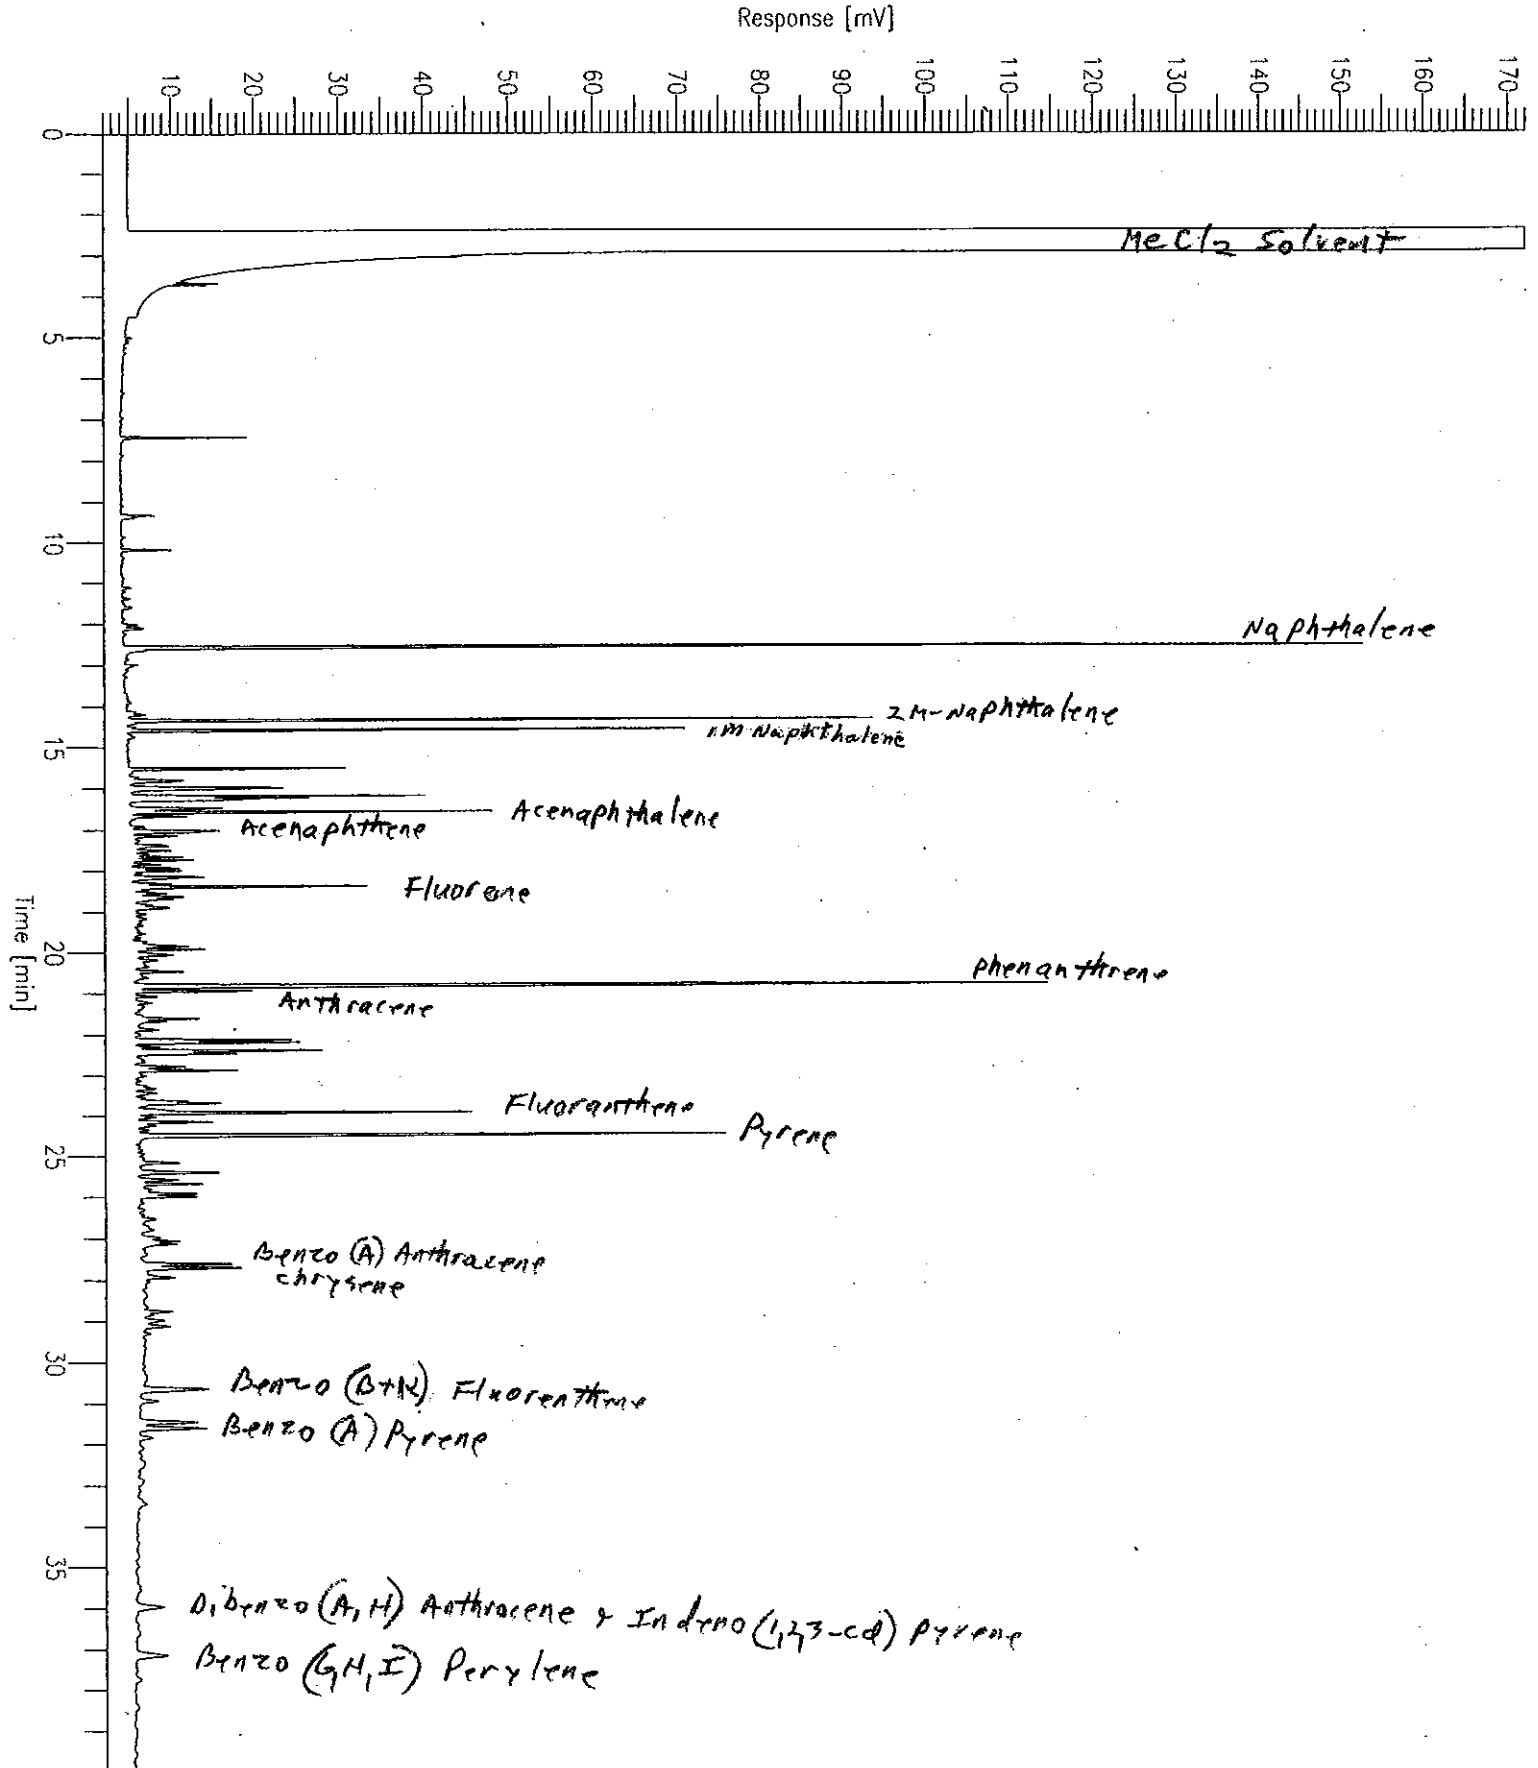 Response [mV]
10
20
30
40
50
60
70
80
90
100
110
120
130
140
150
160
170
0
MeCl2 Solvent
5
10
Naphthalene
2M-Naphthalene
1M Naphthalene
15
Acenaphthalene
Acenaphthene
Fluorene
Time [min]
20
Phenanthrene
Anthracene
Fluoranthene
Pyrene
25
Benzo (A) Anthracene
chrysene
30
Benzo (B+K) Fluorenthene
Benzo (A) Pyrene
35
Dibenzo (A, H) Anthracene & Indeno (1,2,3-cd) Pyrene
Benzo (G,H,I) Perylene